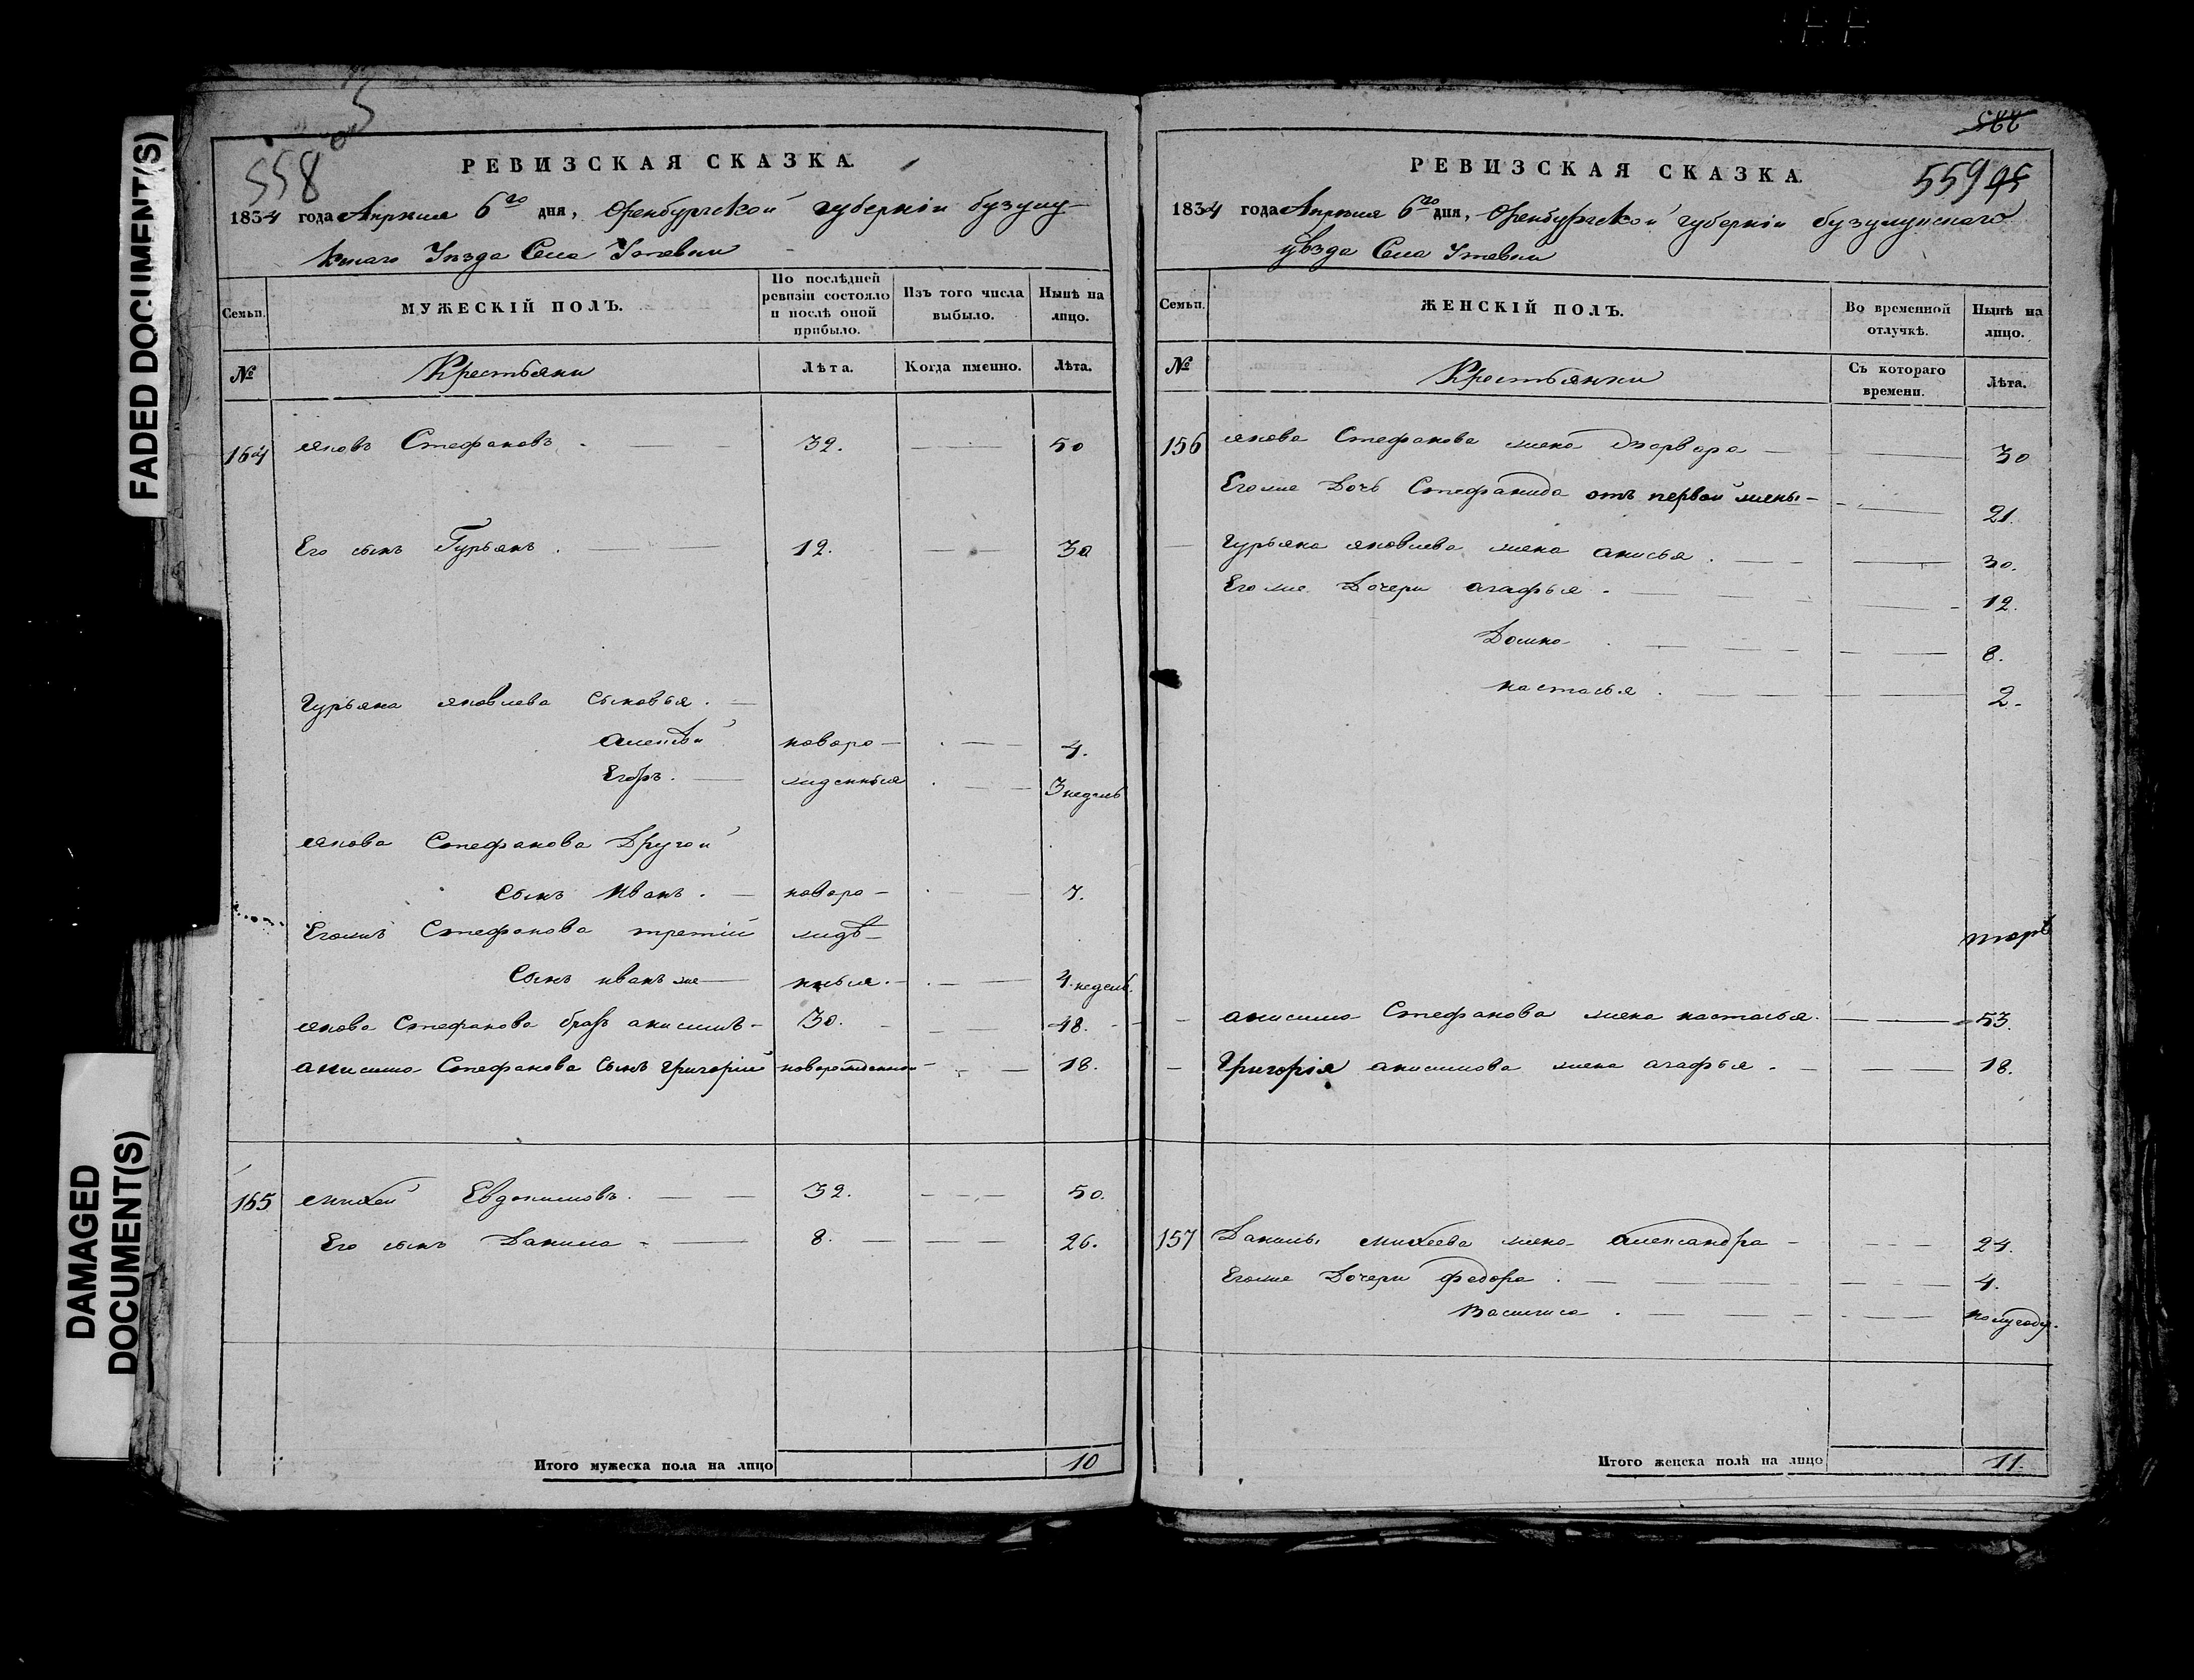 FADED DOCUMENT(S)
DAMAGED
DOCUMENT(S)
558
РЕВИЗСКАЯ СКАЗКА.
1834 года Апреля 6го дня, Оренбургской губернiи бузулу-
кскаго Уѣзда Села Утевки
Семьи.
МУЖЕСКІЙ ПОЛЪ.
По послѣдней
ревизіи состояло
и послѣ оной
прибыло.
Изъ того числа
выбыло.
Нынѣ на
лицо.
№
Крестьяни
Лѣта.
Когда именно.
Лѣта.
164 яковъ Стефановъ. 32. 50
Его сынъ Гурьянъ. 12. 30
Гурьяна яковлева сыновья.
алексѣй новоро- 4.
Егоръ. жденныя 3 недель
якова Стефанова Другой
сынъ Иванъ. новоро- 7.
Егожъ Стефанова третій жде-
Сынъ иванъ же нныя. 4. недель.
якова Стефанова братъ анисимъ- 30. 48.
анисима Стефанова сынъ григорій новорожденной 18.
165 михей Евдокимовъ. 32. 50.
Его сынъ Данила 8. 26.
Итого мужеска пола на лицо 10
588
559
РЕВИЗСКАЯ СКАЗКА.
1834 года Апреля 6го дня, Оренбургской губерніи бузулукскаго
уѣзда Села Утевки
Семьи.
ЖЕНСКІЙ ПОЛЪ.
Во временной
отлучкѣ.
Нынѣ на
лицо.
№
Крестьянки
Съ котораго
времени.
Лѣта.
156 якова Стефанова жена Варвара 30
Егоже Дочь Стефанида отъ первой жены- 21.
гурьяна яковлева жена анисья. 30.
Егоже Дочери агафья. 12.
Домна 8.
настасья. 2.
анисима Стефанова жена настасья. 53.
Григорія анисимова жена агафья. 18.
157 Данилы михеева жена александра 24.
Егоже Дочери федора. 4.
Василиса. полугоду.
Итого женска пола на лицо 11.